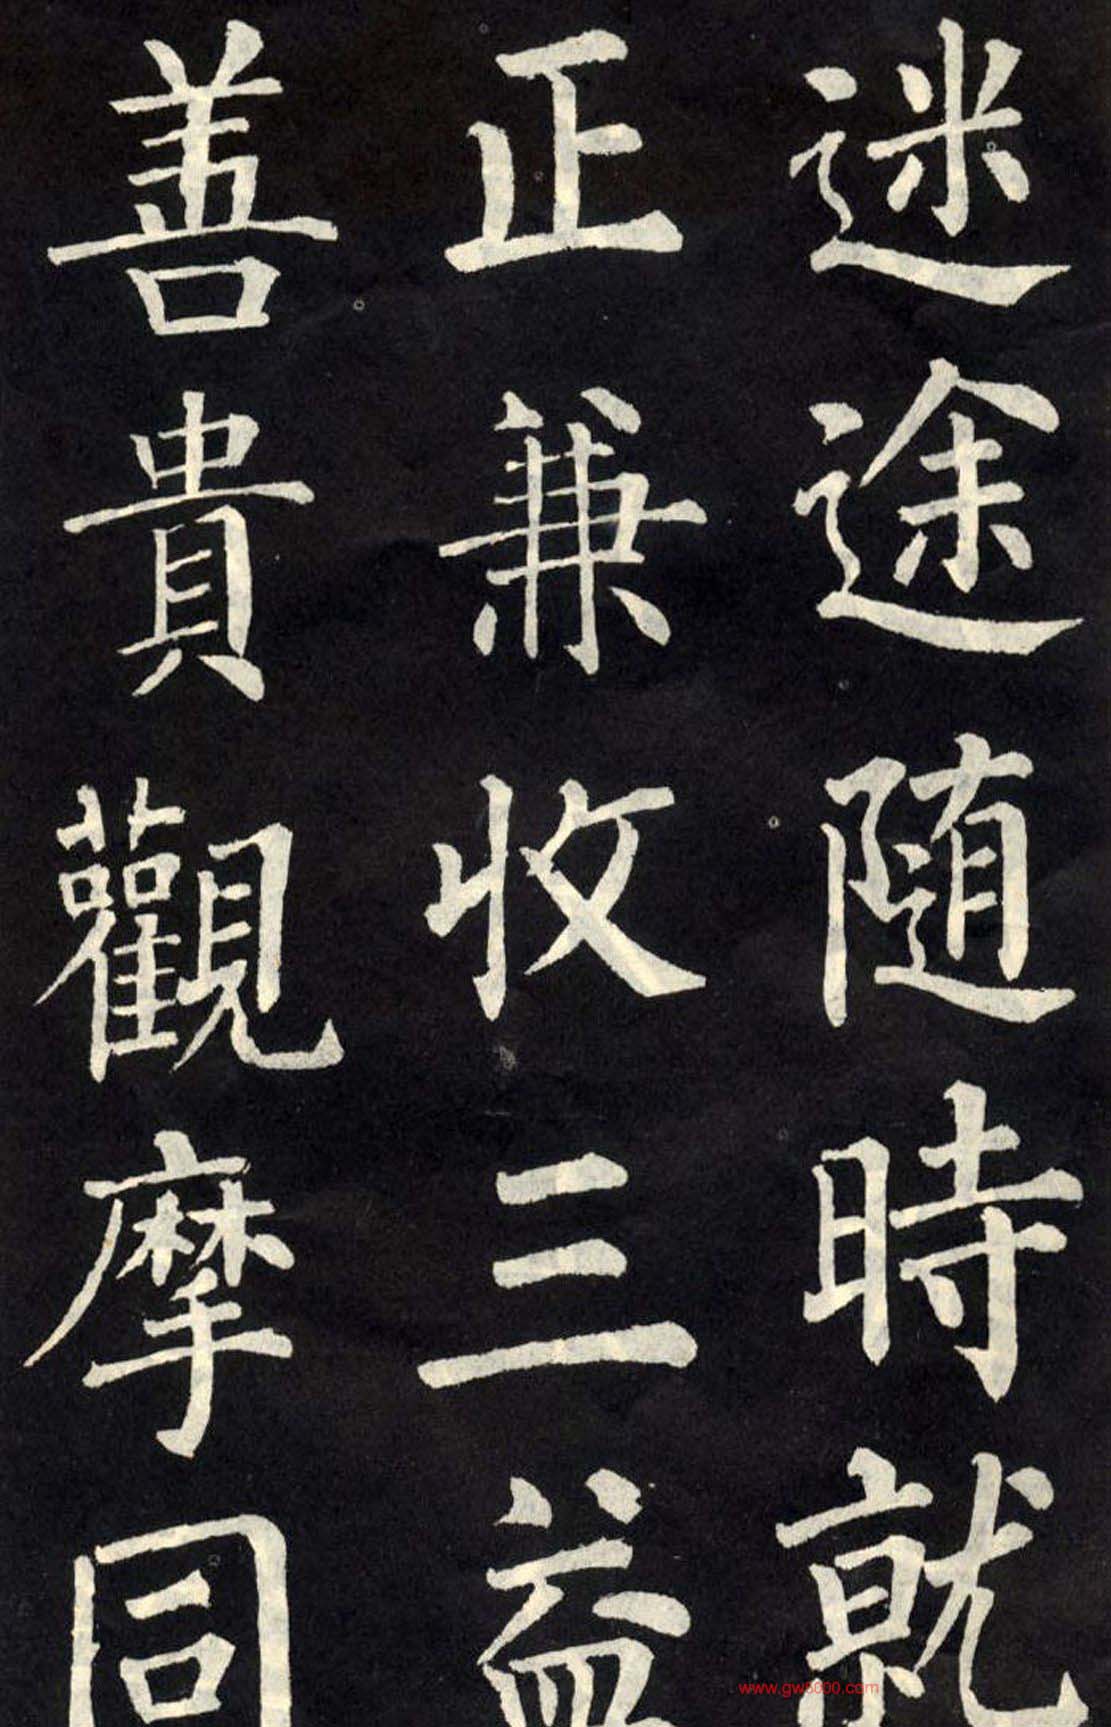 迷途随時就
正兼收三益
善貴觀摩同
www.gw5000.com